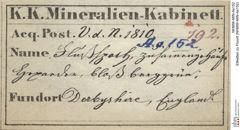 K.K. Mineralien-Kabinett.
Acq. Post. V. d. N. 1810. 792.
A.g.162
Name Flußspath, zusammengehäufte
Hexaeder, blaß berggrün.
Fundort Derbyshire, England